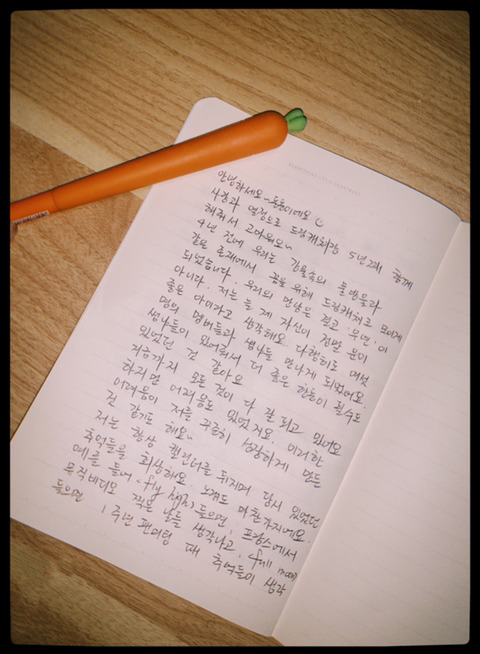 안녕하세요~ 동동이에요
사랑과 열정으로 드림캐쳐랑 5년2개 함께
해줘서 고마워요~
4년 전에 우리는 강물속의 물방울과
같은 존재에서 꿈을 위해 드림캐쳐로 모이게
되었습니다. 우리의 만남은 결코 우연이
아니다. 저는 늘 제 자신이 정말 운이
좋은 아이라고 생각해요 다행히도 여섯
명의 멤버들과 썸냐들 만나게 되었어요
썸냐들이 있어줘서 더 좋은 한동이 될수도
있었던 건 같아요
지금까지 모든 것이 다 잘 되고 있어요
하지만 어려움도 있었거요. 이러한
어려움이 저를 꾸준히 성장하게 만든
건 같기도 해요~
저는 항상 캘린더를 뒤지며 당시 있었던
추억들을 회상해요 노래도 마찬가지에요.
예를 들어 · fly high 들으면, 프랑스에서
뮤직비디오 찍은 날들 생각나고, full moon
들으면 1주년 팬미팅 때 추억들이 생각